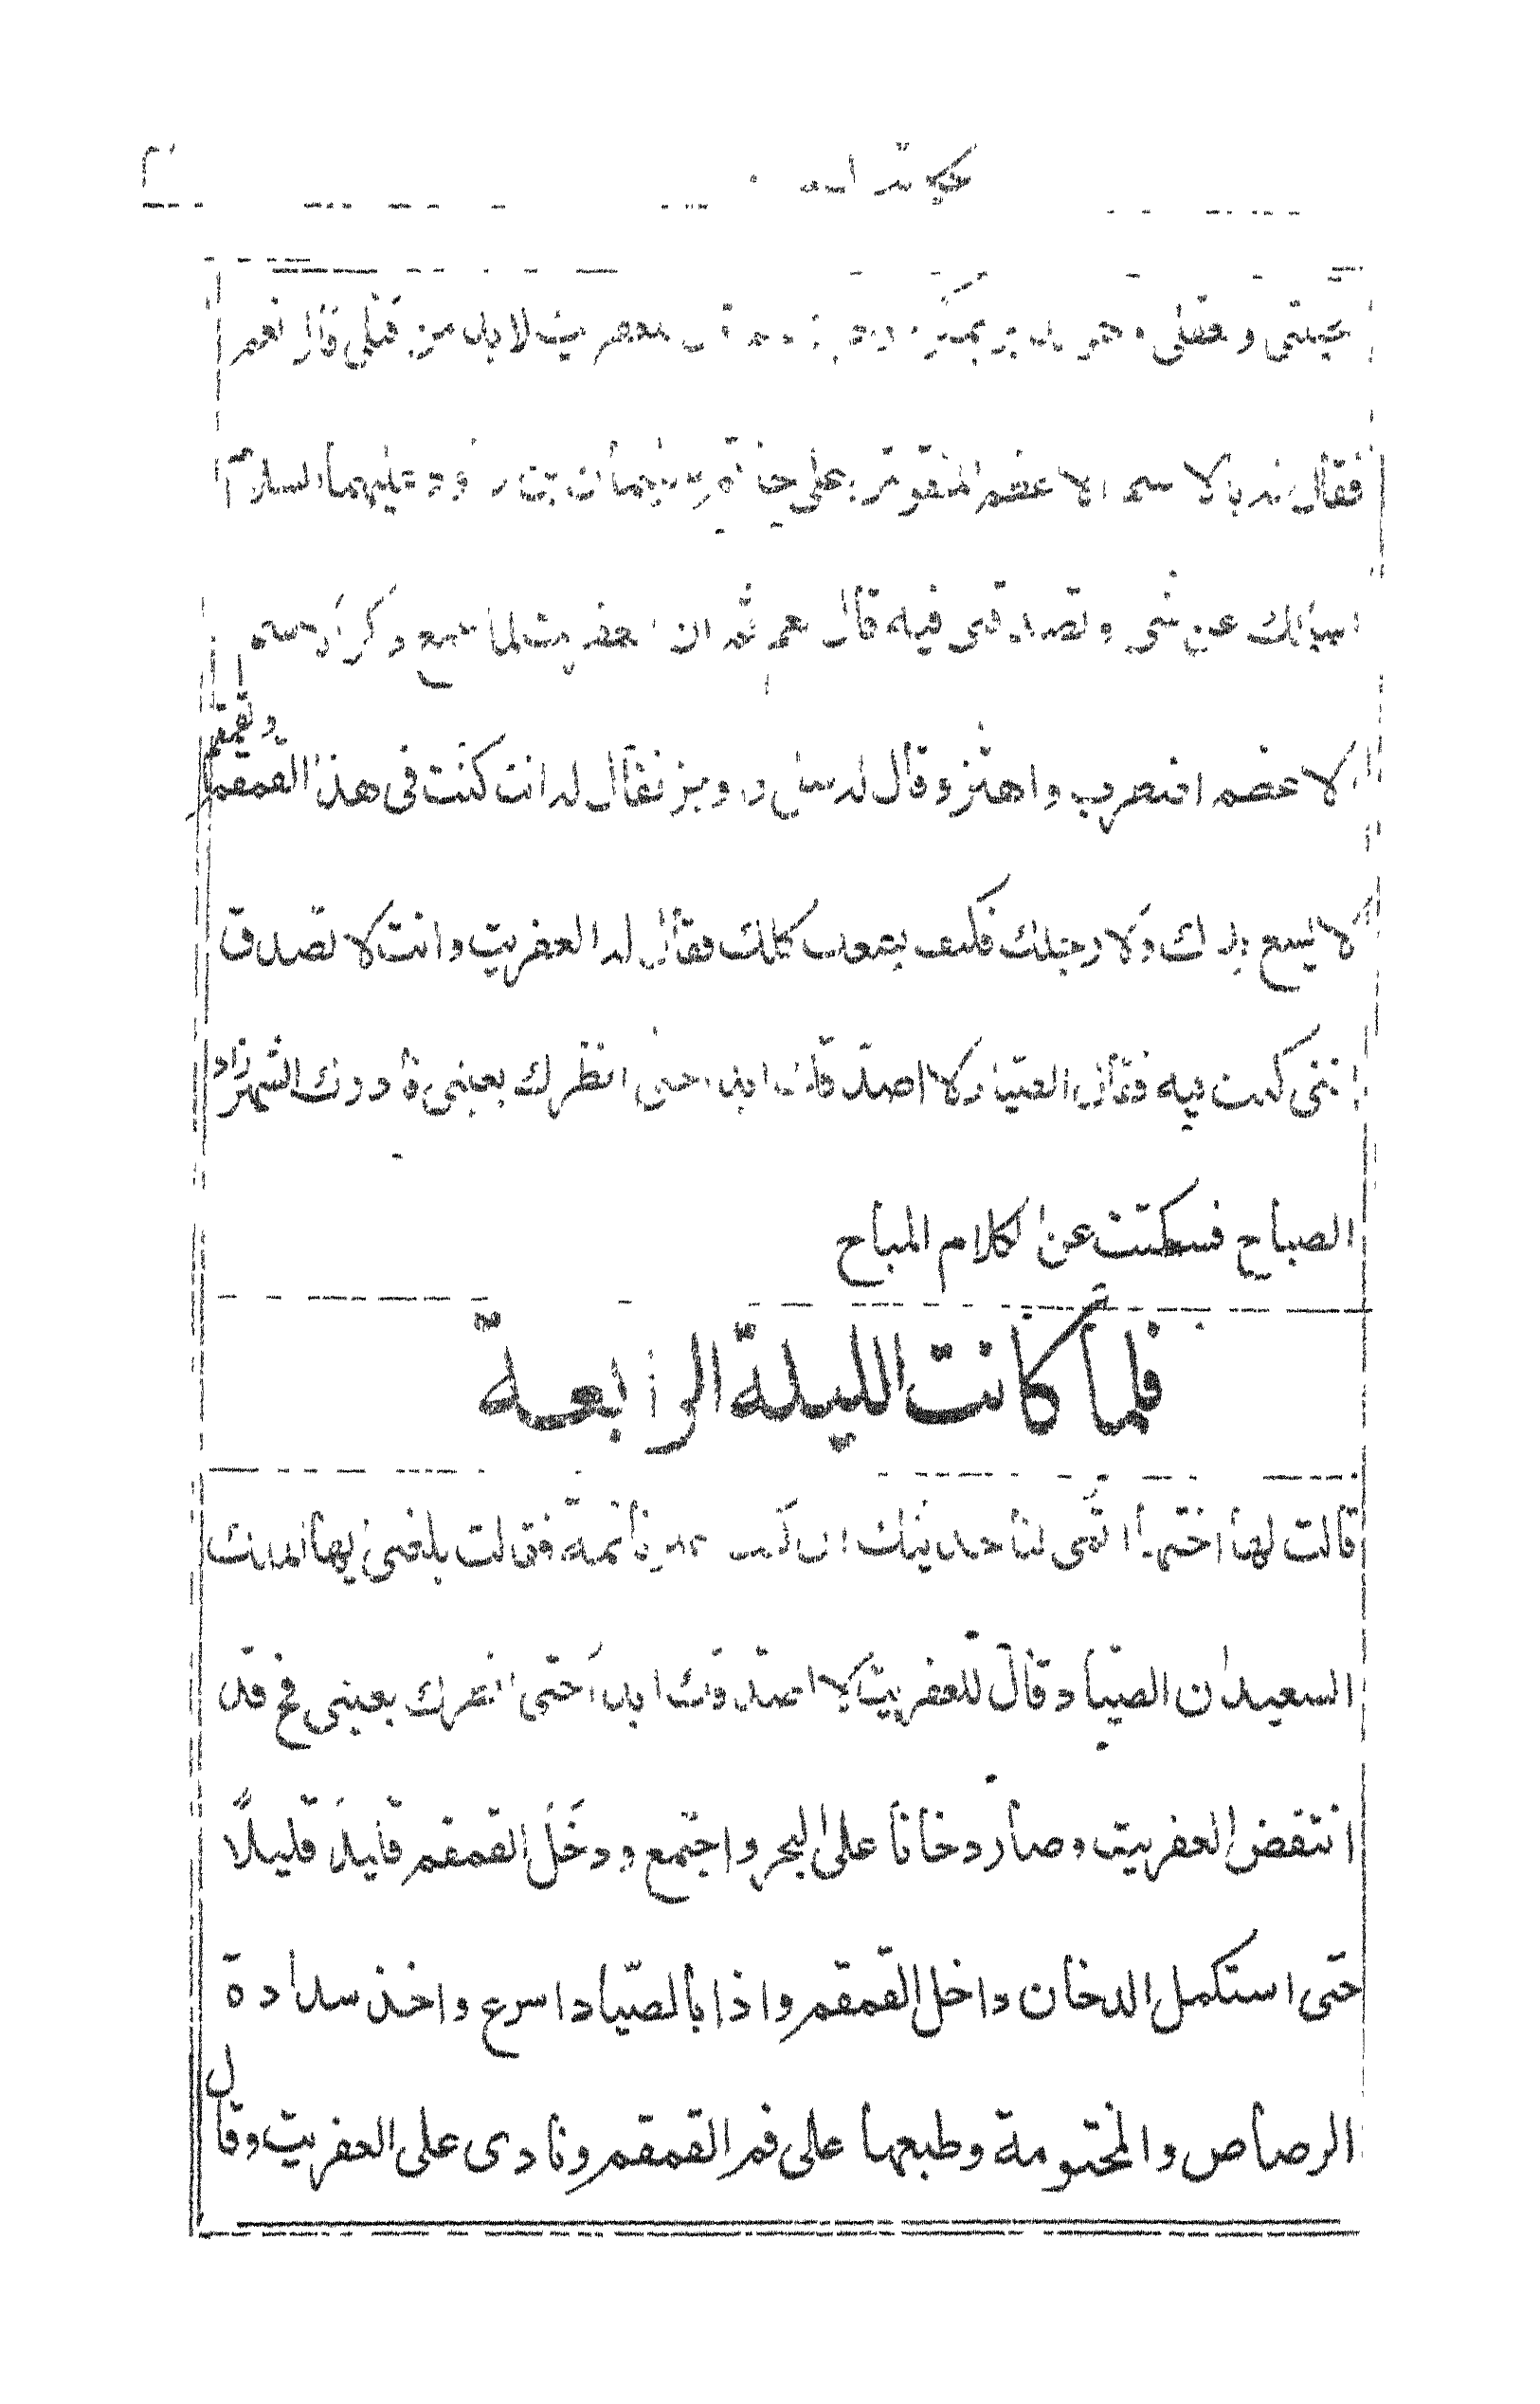 بحيلتي وعقلي وهو يدبر بمكره قال للعفريت لا بد من قتلي قال نعم
فقال له بالاسم الاعظم المنقوش على خاتم سليمان بن داود عليهما السلام
اسالك عن شي وتصدقني فيه قال نعم ثم ان العفريت لما سمع ذكر الاسم
الاعظم اضطرب واهتز وقال له سل واوجز فقال له انت كنت في هذا القمقم والقمقم
لا يسع يدك ولا رجلك فكيف يسعك كلك فقال له العفريت وانت لا تصدق
انني كنت فيه فقال الصياد لا اصدقك ابدا حتى انظرك بعيني فادرك الشهرزاد
الصباح فسكتت عن الكلام المباح
فلما كانت الليلة الرابعة
قالت لها اختها اتمي لنا حديثك ان كنت غير نائمة فقالت بلغني ايها الملك
السعيد ان الصياد قال للعفريت لا اصدقك ابدا حتى انظرك بعيني في قد
انتقض العفريت وصار دخانا على البحر واجتمع ودخل القمقم قليلا قليلًا
حتى استكمل الدخان داخل القمقم واذا بالصياد اسرع واخذ سدادة
الرصاص والمختومة وطبعها على فم القمقم ونادى على العفريت وقال